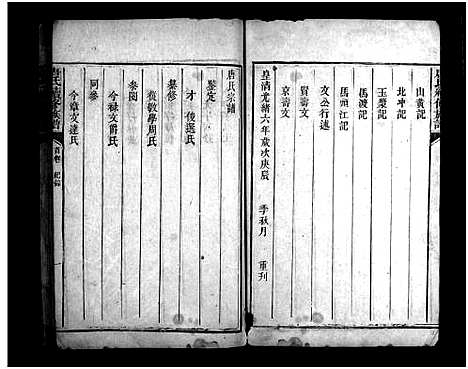 山黄記
北冲記
玉溪記
馬渡記
馬頭江記
文公行述
賢壽文
京壽文
皇清光緒六年歲次庚辰 季秋月 重刋
唐氏宗譜
鑒定
才俊選氏
纂修
敬學周氏
參閱
今祿文爵氏
同參
今章文達氏